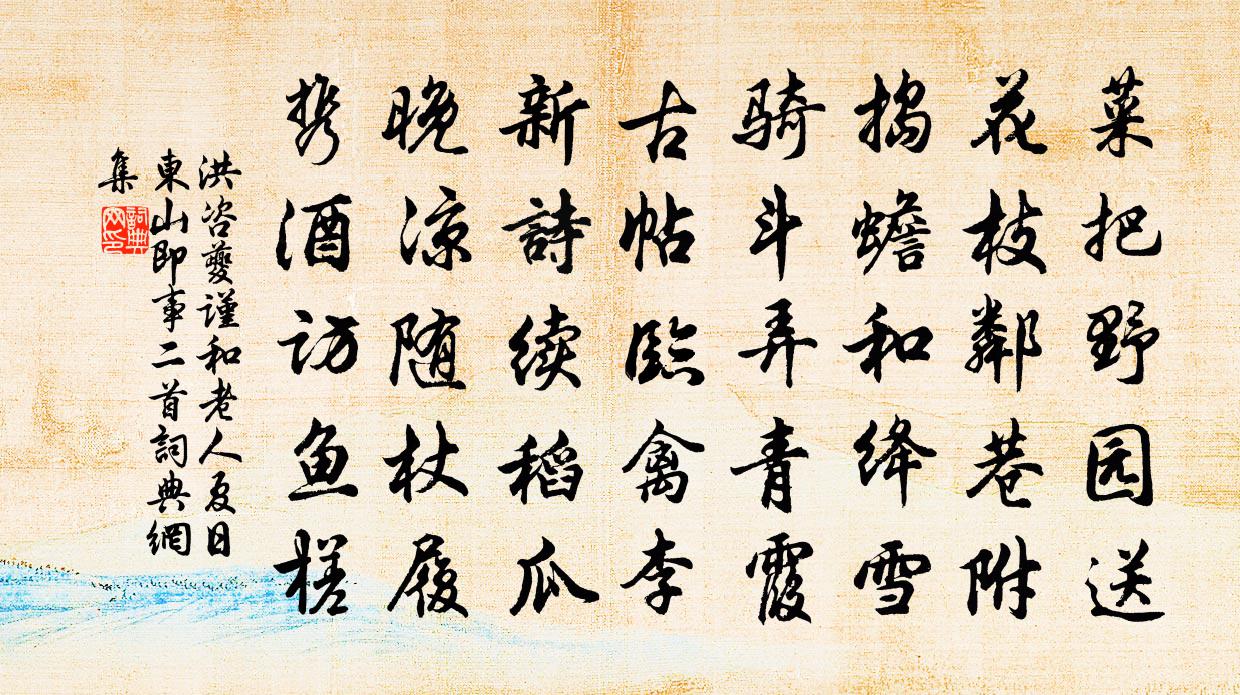 菜把野园送
花枝鄰巷附
搗蟾和绛雪
骑斗弄青霞
古帖臨禽李
新詩续稻瓜
晚凉随杖屐
携酒访鱼槎
洪咨夔謹和老人夏日
東山即事二首詞典網
集
詞典
网印